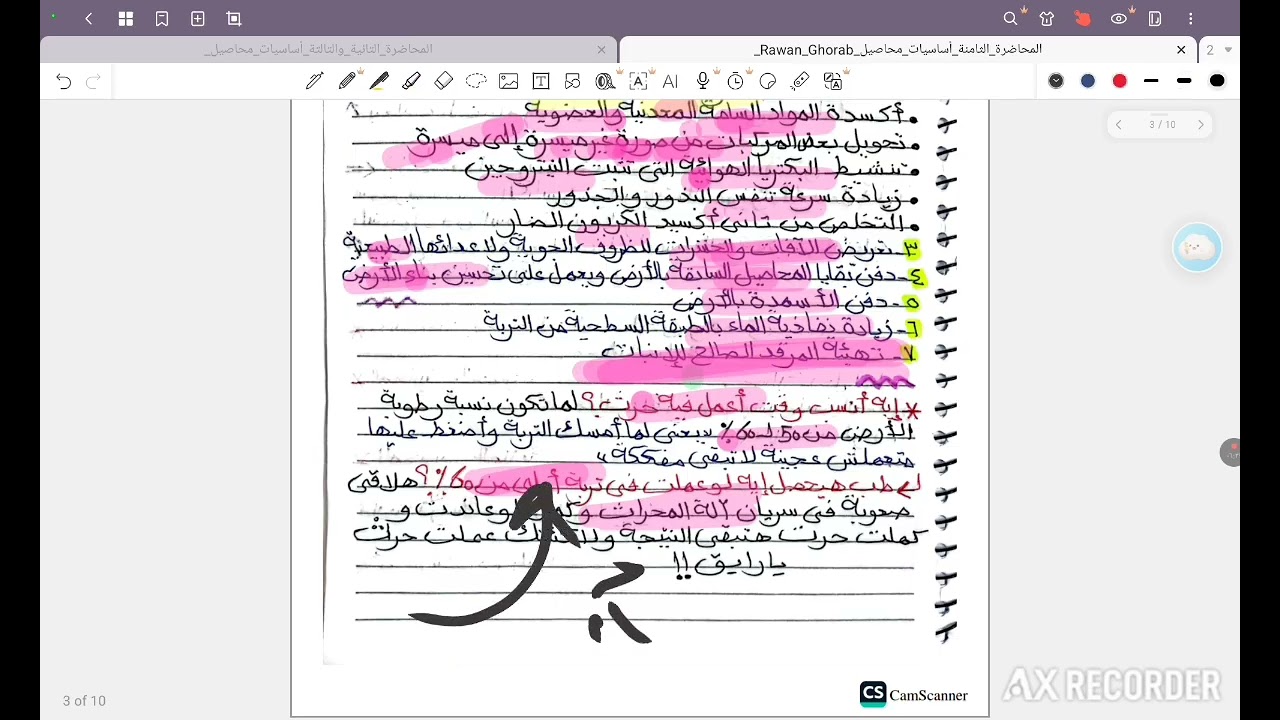 المحاضرة_الثانية_والثالثة_أساسيات_محاصيل_
المحاضرة_الثامنة_أساسيات_محاصيل_Rawan_Ghorab_
2
3 / 10
• أكسدة المواد السامة المعدنية والعضوية
• تحويل بعض المركبات من صورة غير ميسرة إلى ميسرة
• تنشيط البكتريا الهوائية التى تثبت النيتروجين
• زيادة سرعة تنفس البذور والجذور
• التخلص من ثانى أكسيد الكربون الضار
٣- تعريض الآفات والحشرات للظروف الجوية ولاعدائها الطبيعية
٤- دفن بقايا المحاصيل السابقة بالأرض ويعمل على تحسين بناء الأرض
٥- دفن الأسمدة بالأرض
٦- زيادة نفاذية الماء بالطبقة السطحية من التربة
٧- تهيئة المرقد الصالح للإنبات
* إيه أنسب وقت أعمل فيه حرث؟ لما تكون نسبة رطوبة
الأرض من 50 لـ 60% "يعنى لما أمسك التربة وأضغط عليها
متعملش عجينة لا تبقى مفككة"
طب هيحصل إيه لو عملت فى تربة أعلى من 60%؟ هلاقى
صعوبة فى سريان آلة المحراث و لو عاندت و
كملت حرث هتبقى النتيجة عملت حراث
يا رايق !!
3 of 10
CS CamScanner
AX RECORDER